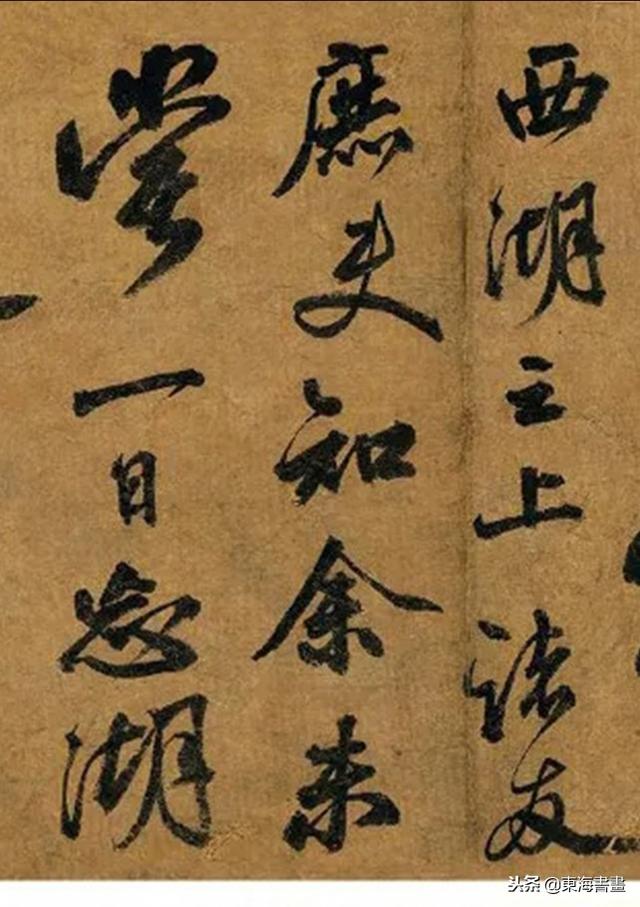 西湖之上諸友
庶使知余未
嘗一日忘湖
头条 @東海書畫